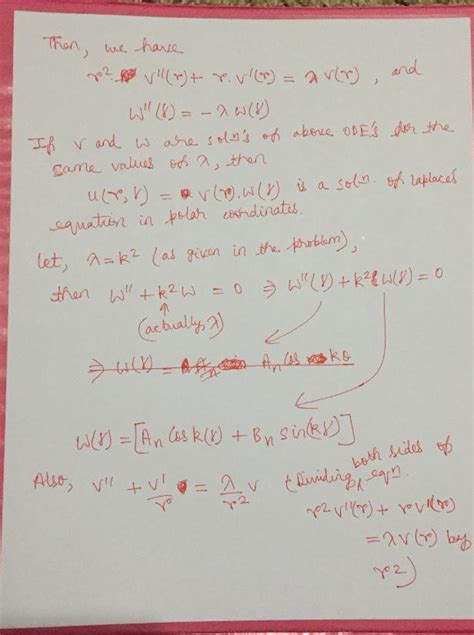 Then, we have
r². v''(r) + r. v'(r) = λ v(r), and
w''(γ) = -λ w(γ)
If v and w are solⁿ's of above ODE's for the
same values of λ, then
u(r, γ) = v(r). w(γ) is a solⁿ. of laplace's
equation in polar coordinates.
let, λ = k² (as given in the problem),
then w'' + k² w = 0 ⇒ w''(γ) + k² w(γ) = 0
↑
(actually, λ)
⇒ w(γ) = An cos kθ
w(γ) = [An cos k(γ) + Bn sin(kγ)]
Also, v'' + v'/r = λ/r² v (Dividing both sides of
eqⁿ.
r² v''(r) + r v'(r)
= λ v(r) by
r²)